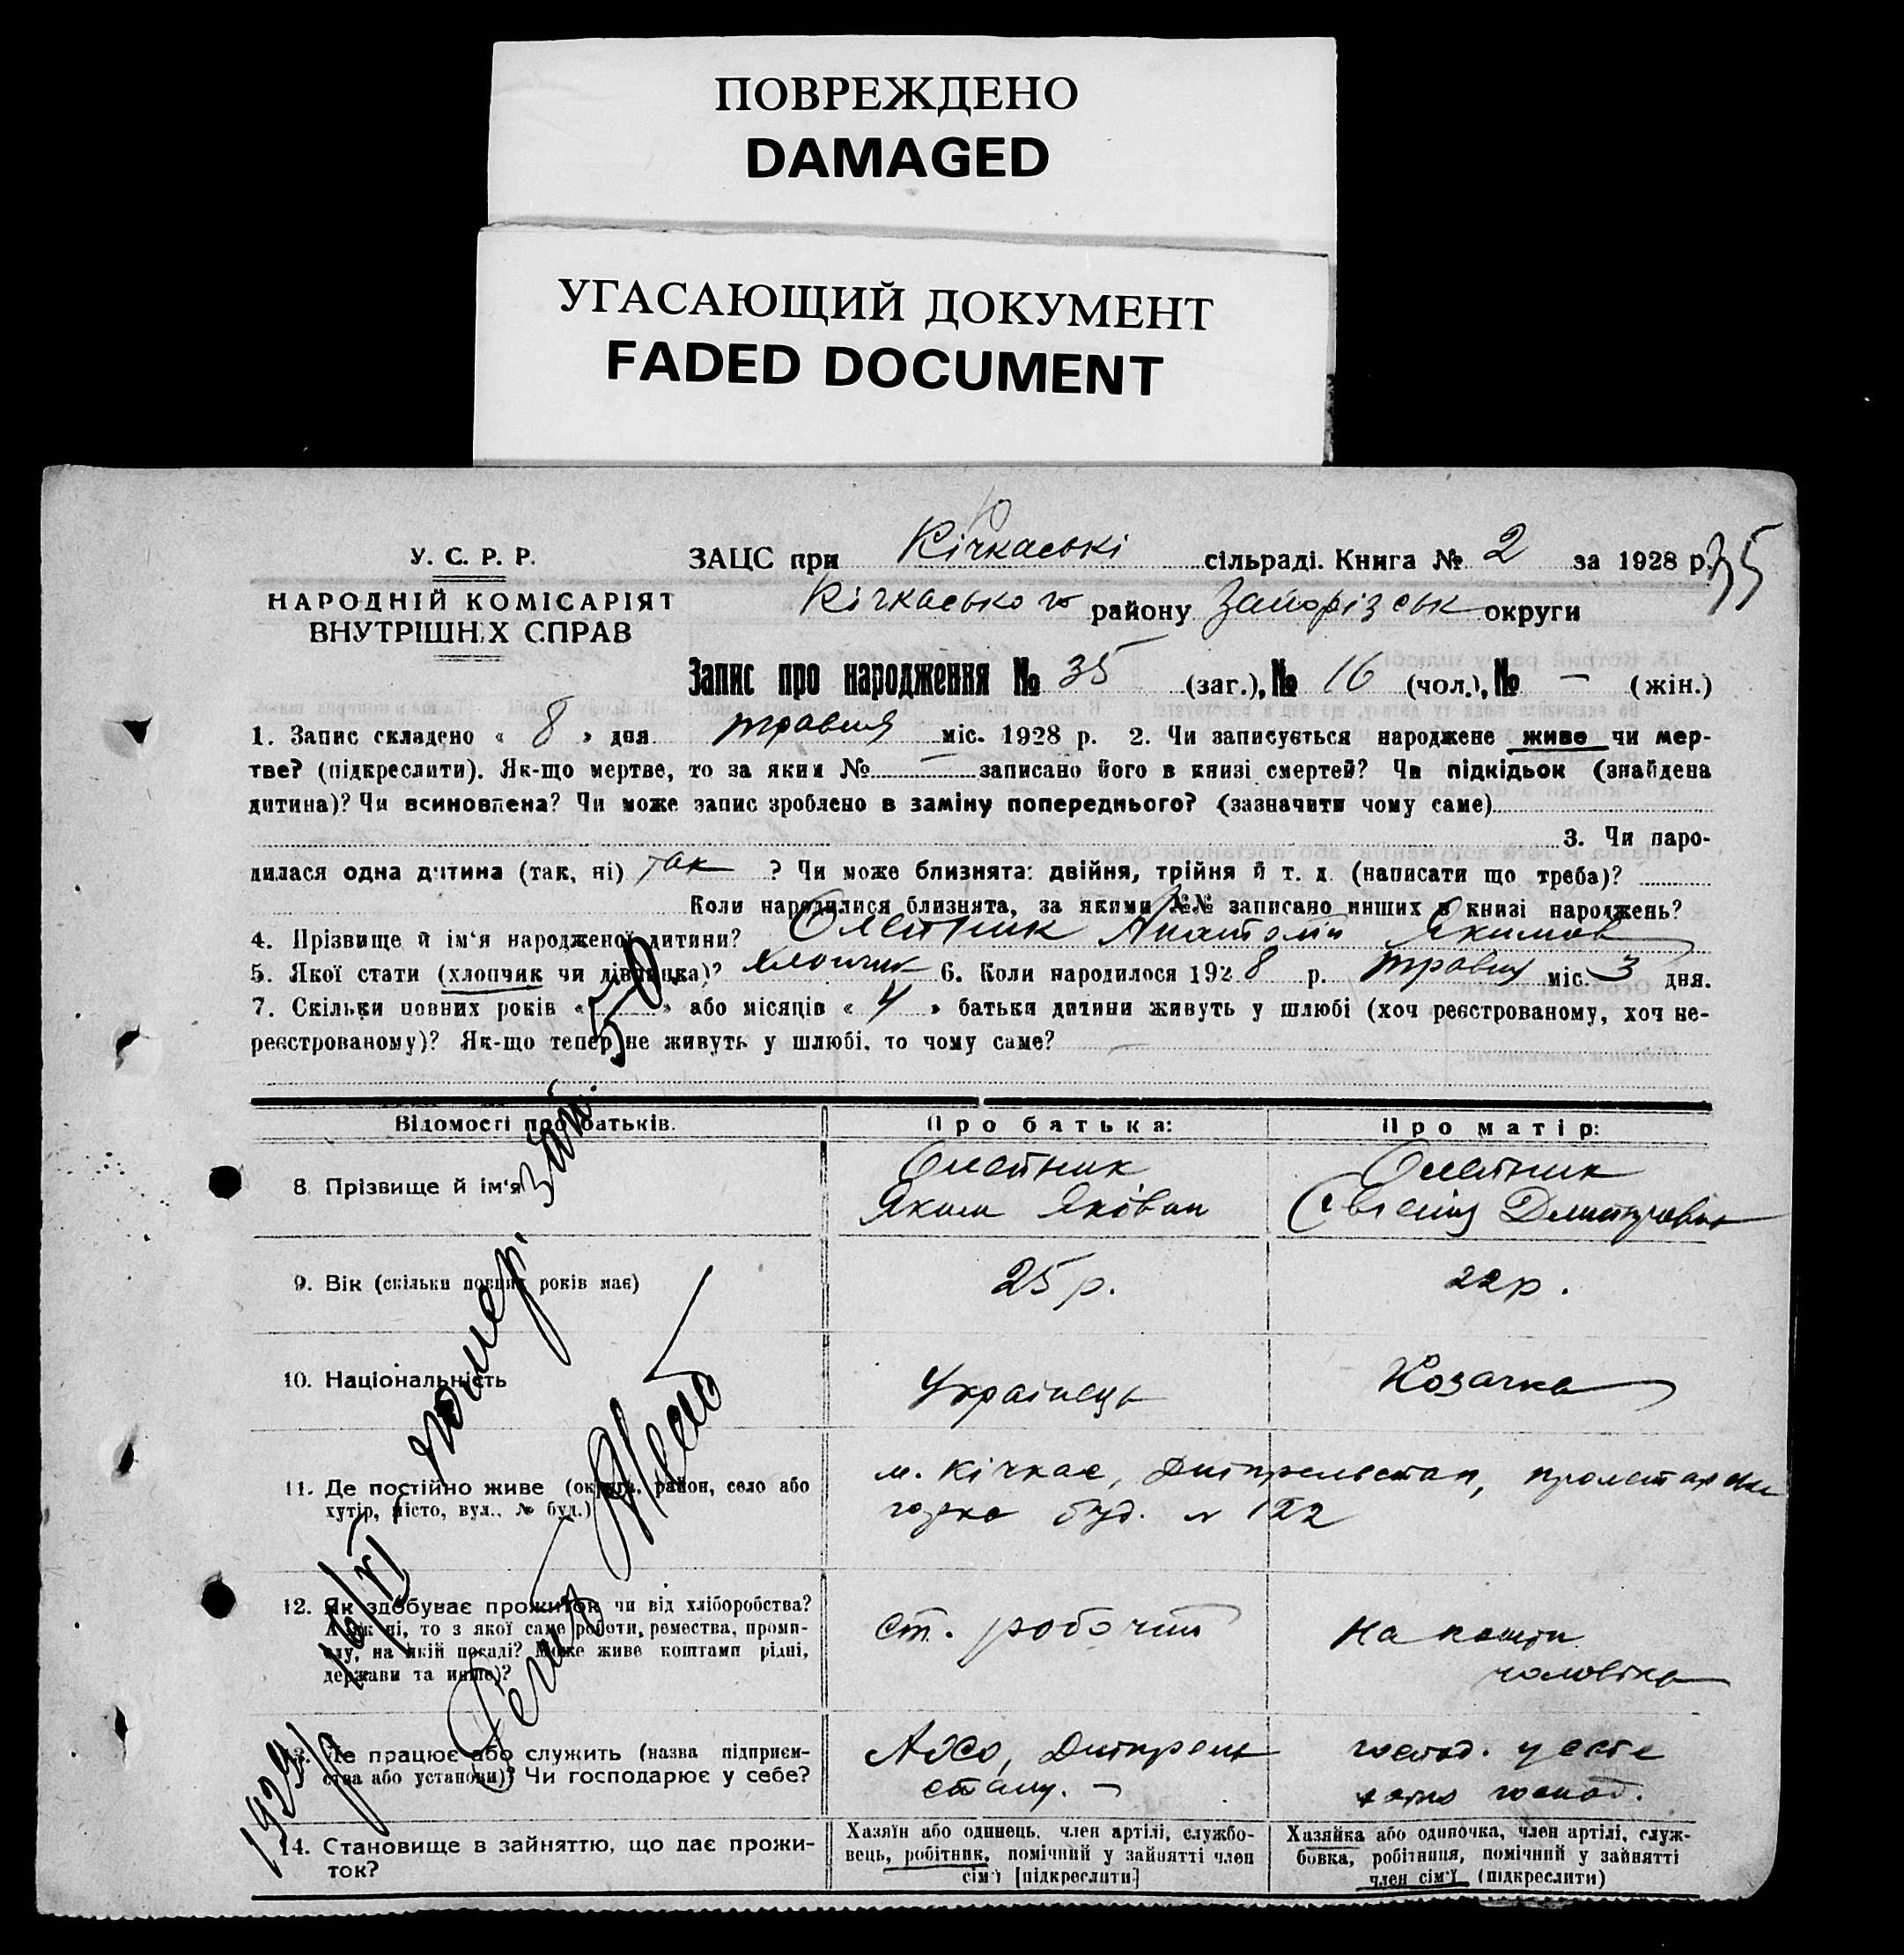 ПОВРЕЖДЕНО
DAMAGED
УГАСАЮЩИЙ ДОКУМЕНТ
FADED DOCUMENT
У. С. Р. Р.
НАРОДНІЙ КОМІСАРІЯТ
ВНУТРІШНІХ СПРАВ
ЗАЦС при Кічкаські сільраді. Книга № 2 за 1928 р. 35
Кічкаського району Запорізськ округи
Запис про народження № 35 (заг.), № 16 (чол.), № — (жін.)
1. Запис складено « 8 » дня травня міс. 1928 р. 2. Чи записується народжене живе чи мер-
тве? (підкреслити). Як-що мертве, то за яким № — записано його в книзі смертей? Чи підкідьок (знайдена
дитина)? Чи всиновлена? Чи може запис зроблено в заміну попереднього? (зазначити чому саме)
3. Чи наро-
дилася одна дитина (так, ні) так ? Чи може близнята: двійня, трійня й т. д. (написати що треба)?
Коли народилися близнята, за якими №№ записано инших в книзі народжень?
4. Прізвище й ім'я народженої дитини? Олейник Анатолій Якимов
5. Якої стати (хлопчик чи дівчинка)? хлопчик 6. Коли народилося 1928 р. травня міс. 3 дня.
7. Скільки повних років « » або місяців « 4 » батьки дитини живуть у шлюбі (хоч реєстрованому, хоч не-
реєстрованому)? Як-що тепер не живуть у шлюбі, то чому саме? —
Відомості про батьків.
Про батька:
Про матір:
8. Прізвище й ім'я
Олейник
Яким Яковин
Олейник
Євгенія Дмитровна
9. Вік (скільки повних років має)
25 р.
22 р.
10. Національність
Українець
Козачка
11. Де постійно живе (округа, район, село або
хутір, місто, вул., № буд.)
м. Кічкас, Дніпрельстан, пролетарска
горка буд. № 122
12. Як здобуває прожиток чи від хліборобства?
А як ні, то з якої саме роботи, ремества, проми-
слу, на якій посаді? Може живе коштами рідні,
держави та инше)?
ст. робочий
На кошти
чоловіка
13. Де працює або служить (назва підприєм-
ства або установи)? Чи господарює у себе?
АХО, Дніпрель
стану. —
господ. у себе
14. Становище в зайняттю, що дає прожи-
ток?
Хазяїн або одинець, член артілі, службо-
вець, робітник, помічний у зайнятті член
сім'ї [підкреслити]
Хазяйка або одиночка, член артілі, служ-
бовка, робітниця, помічний у зайнятті
член сім'ї (підкреслити)
1929 р. 16/VI помер. зап. 50